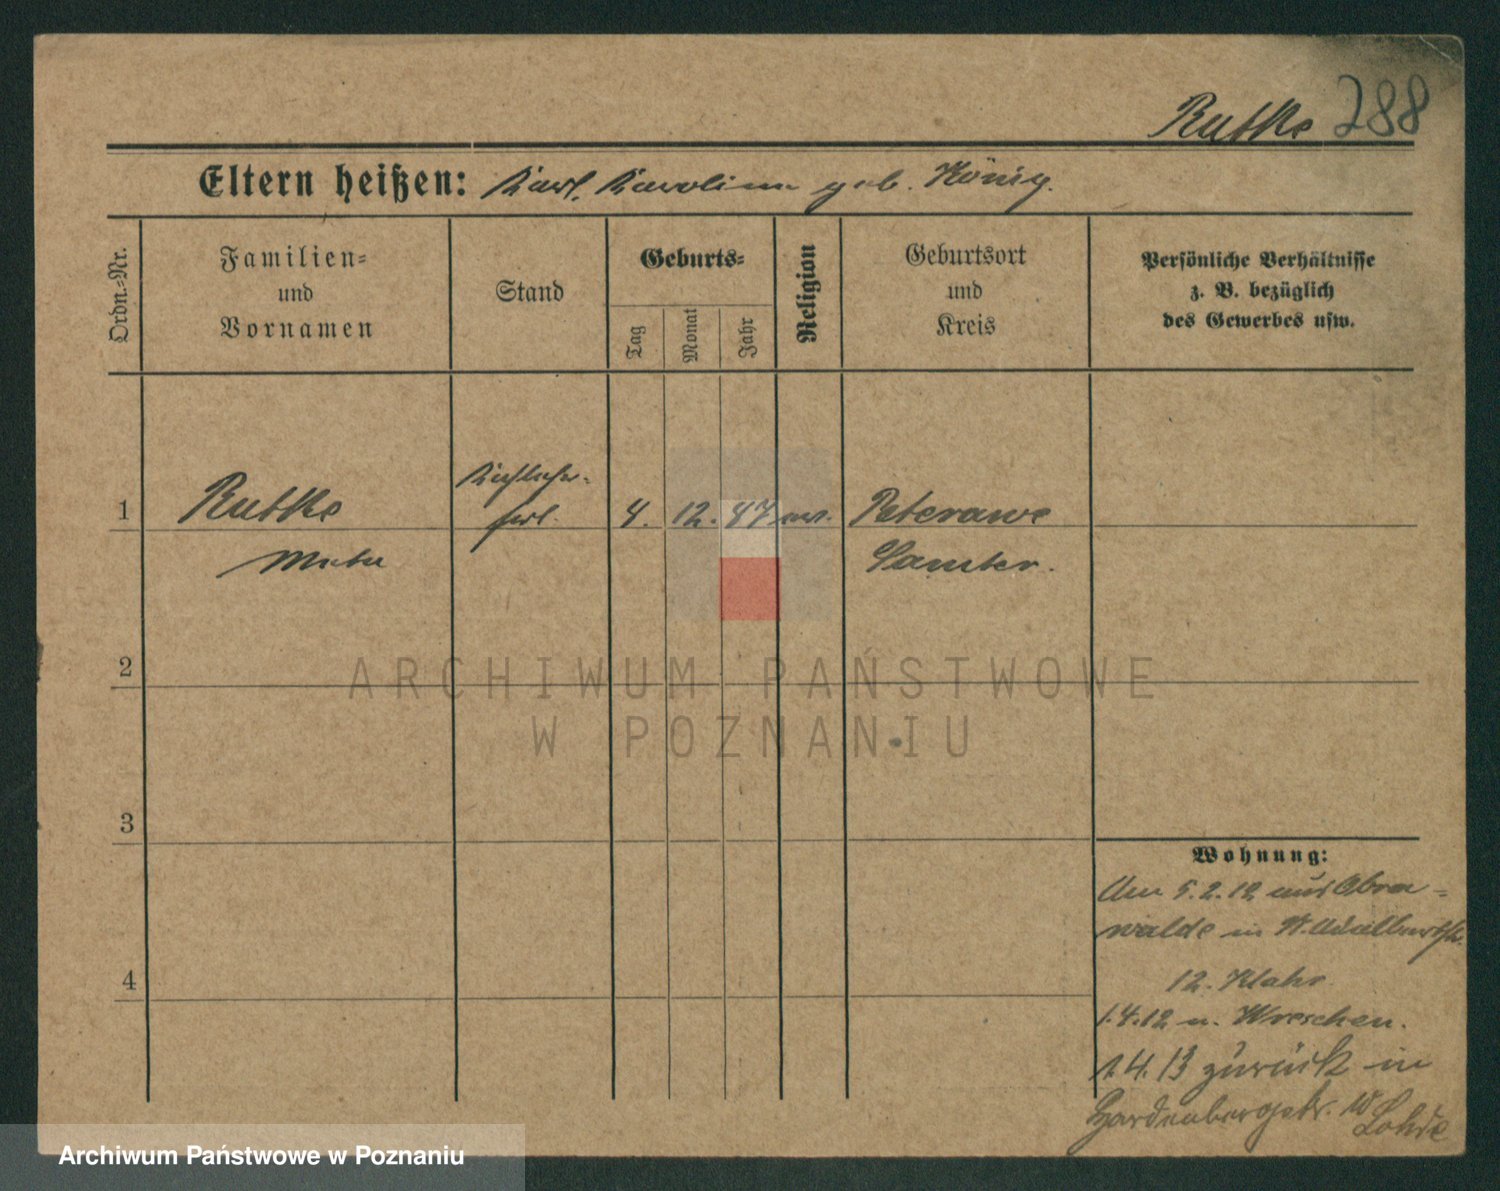 Rutke 288
Eltern heißen: Karl, Karolina geb. König.
Ordn.=Nr.
Familien=
und
Vornamen
Stand
Geburts=
Tag
Monat
Jahr
Religion
Geburtsort
und
Kreis
Persönliche Verhältnisse
z. B. bezüglich
des Gewerbes usw.
1 Rutke 4. 12. 47 ev. Peterawe
Samter.
2
3
4
Wohnung:
Am 5.2.12 aus Obra=
walde in St. Adalbertstr.
12. Klahr
1.4.12 n. Wreschen.
1.4.13 zurück in
Hardenbergstr. 10 Lohde
ARCHIWUM PAŃSTWOWE
W POZNANIU
Archiwum Państwowe w Poznaniu